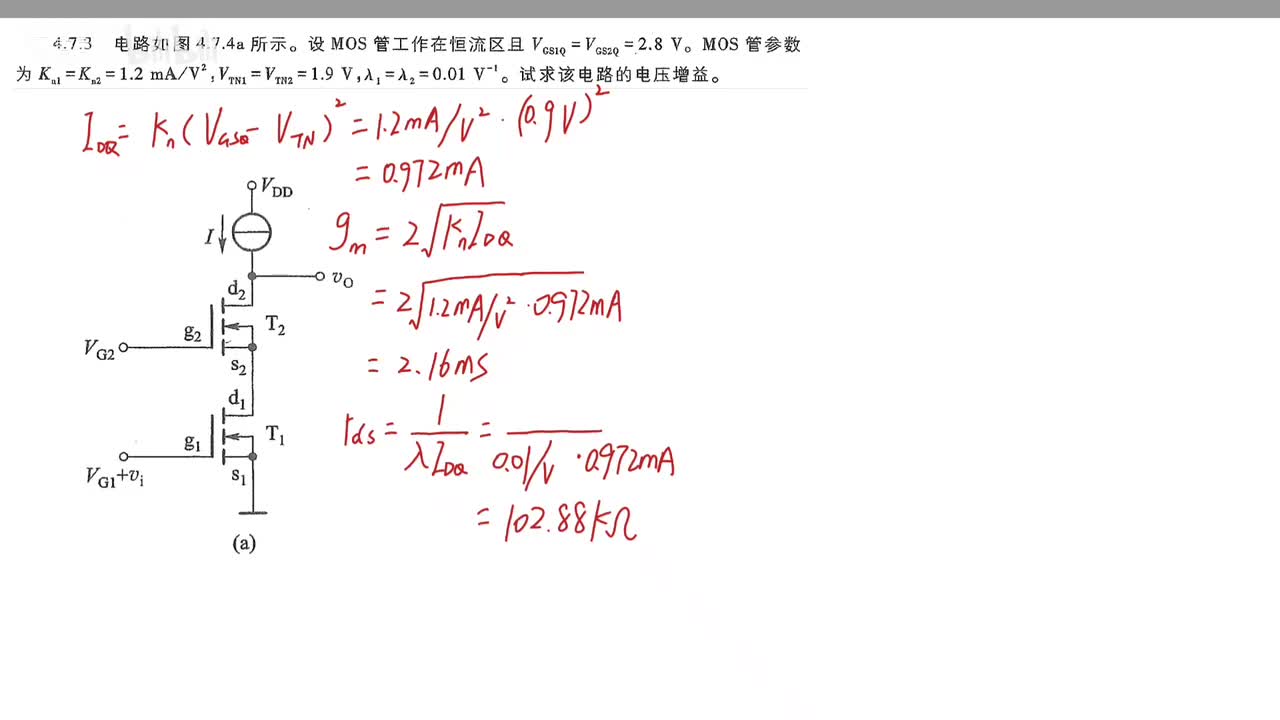 4.7.3 电路如图 4.7.4a 所示。设 MOS 管工作在恒流区且 V_GS1Q = V_GS2Q = 2.8 V。MOS 管参数
为 K_n1 = K_n2 = 1.2 mA/V², V_TN1 = V_TN2 = 1.9 V, λ₁ = λ₂ = 0.01 V⁻¹。试求该电路的电压增益。
I_DQ = K_n (V_GSQ - V_TN)² = 1.2mA/V² · (0.9V)²
= 0.972mA
g_m = 2√(K_n I_DQ)
= 2√(1.2mA/V² · 0.972mA)
= 2.16mS
r_ds = 1/(λI_DQ) = /(0.01/V · 0.972mA)
= 102.88kΩ
V_DD
I
v_O
d₂
g₂
T₂
V_G2
s₂
d₁
g₁
T₁
V_G1+v_i
s₁
(a)